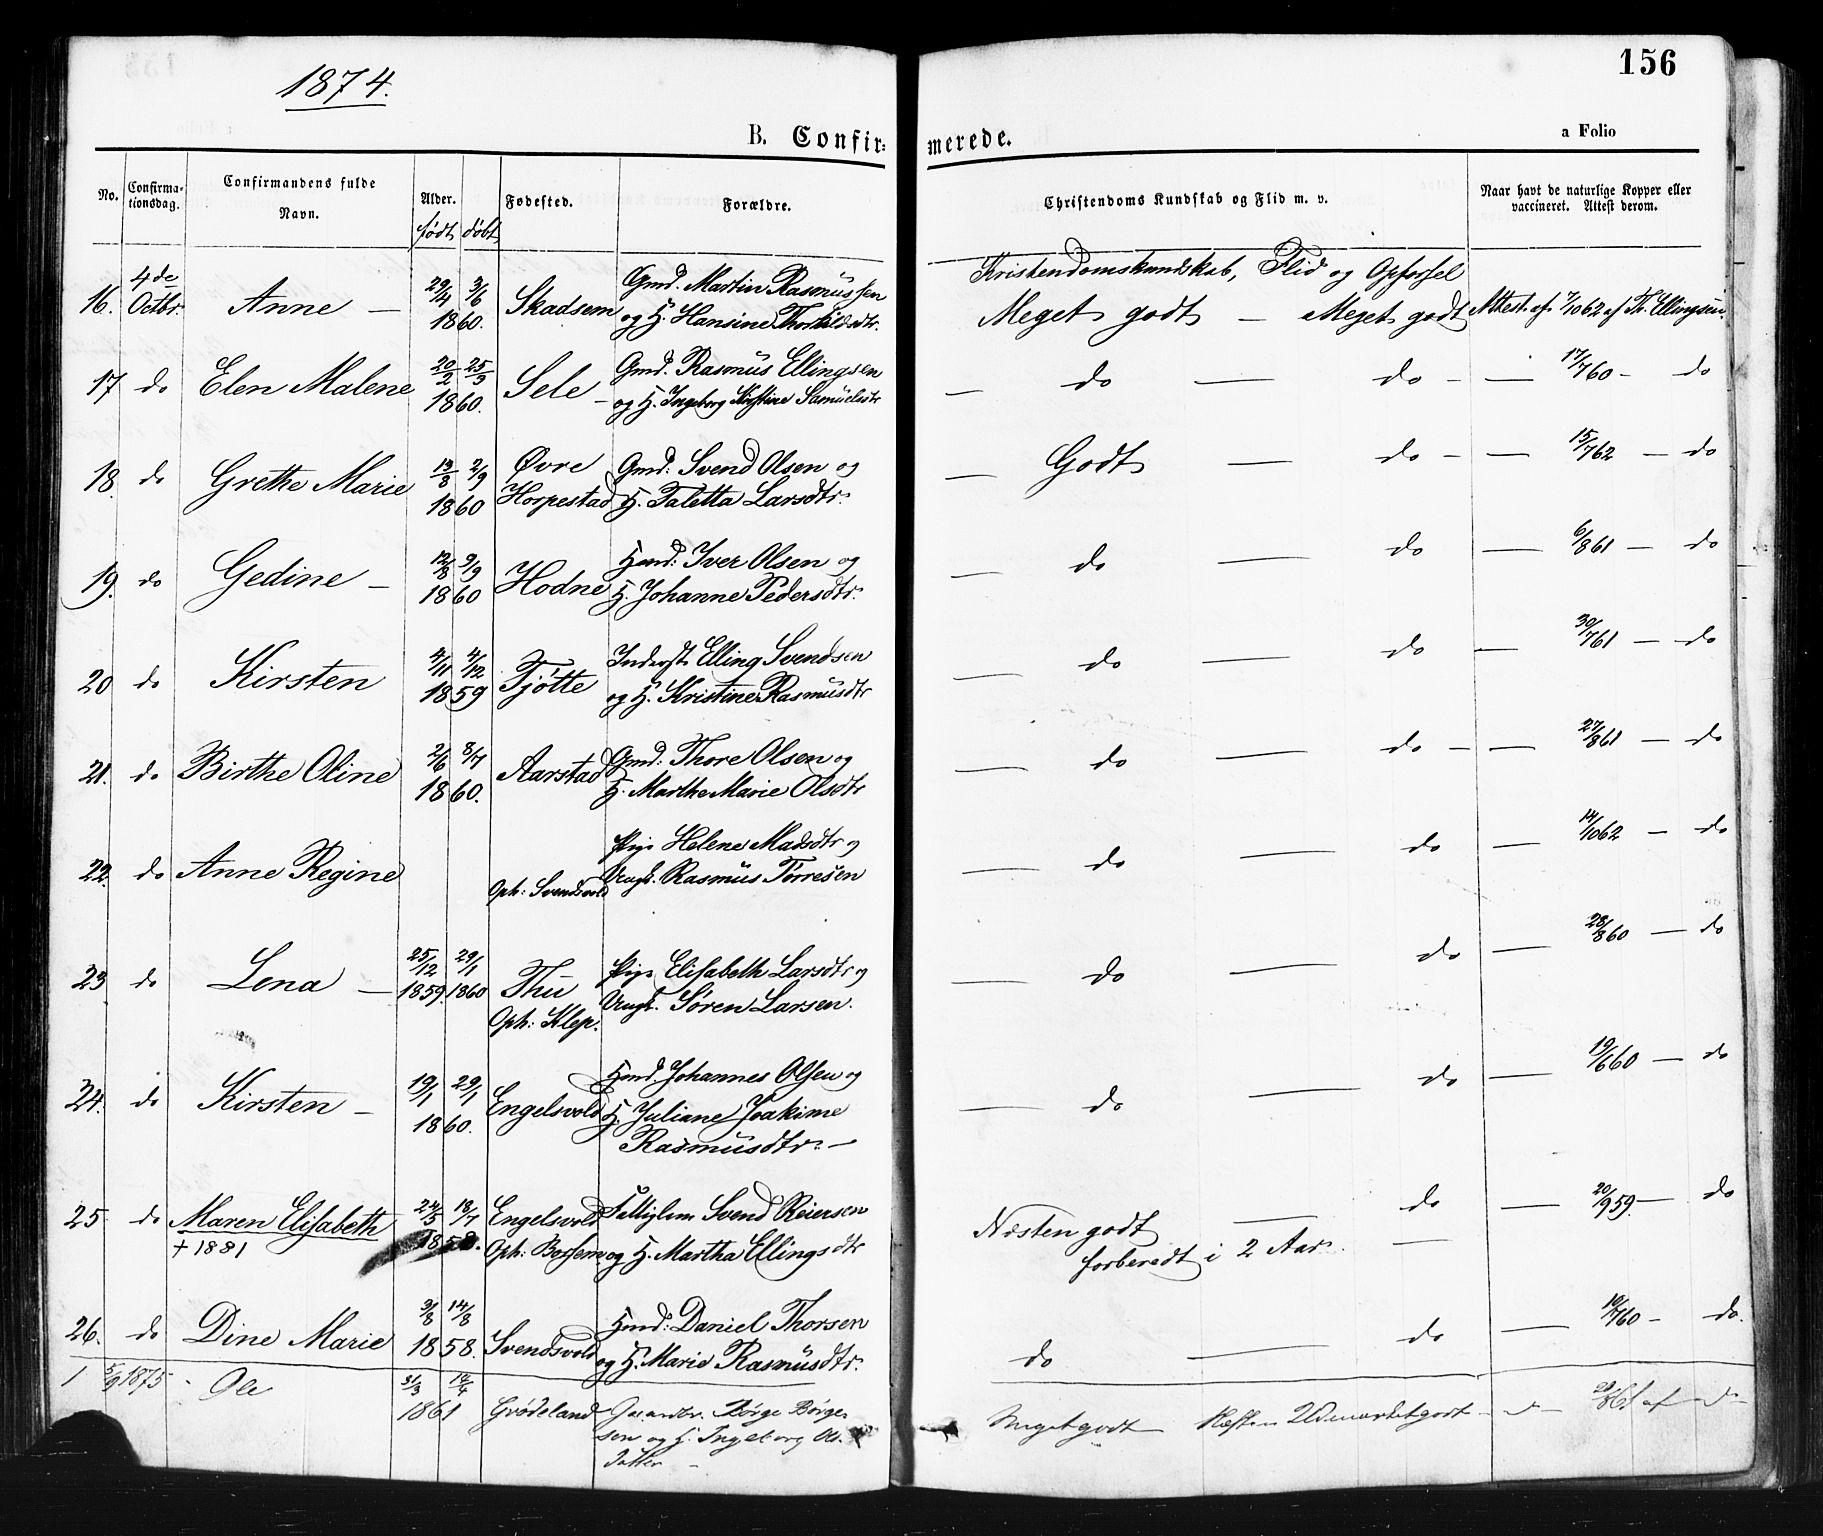 156
1874.
B. Confirmerede.
a Folio
No. Confirmationsdag. Confirmandens fulde Navn. Alder. født døbt Fødested. Forældre. Christendoms Kundskab og Flid m. v. Naar havt de naturlige Kopper eller vaccineret. Attest derom.
Kristendomskundskab, Flid og Opførsel
16. 4de Octbr. Anne — 29/4 3/6 1860. Skadsem Gmd. Martin Rasmussen og H. Hansine Thorkildsdtr. Meget godt — Meget godt Attest af 7/1062 af Th. Ellingsen.
17 do Elen Malene 20/2 25/3 1860. Sele — Gmd. Rasmus Ellingsen og H. Ingeborg Kirstine Samuelsdtr — do — do — — 17/760 — do
18. do Grethe Marie 13/8 2/9 1860 Øvre Horpestad Gmd: Svend Olsen og H. Taletta Larsdtr. — Godt — do — — 15/762 — do
19. do Gedine — 12/8 9/9 1860 Hodne Hmd: Iver Olsen og H. Johanne Pedersdtr. — do — do — 6/861 — do
20 do Kirsten 4/11 4/12 1859 Tjøtte Inderst Elling Svendsen og H. Kristine Rasmusdtr — do — do — 30/761 — do
21. do Birthe Oline 2/6 8/7 1860. Aarstad Gmd. Thore Olsen og H. Marthe Marie Olsdtr — do — do — — 27/861 — do
22. do Anne Regine Oph: Svendsvold Pige Helene Madsdtr og Ungk. Rasmus Torresen — do — do — 14/1062 — do
23 do Lena — 25/12 1859. 29/1 1860 Thu Oph: Klep. Pige Elisabeth Larsdtr og Ungk. Søren Larsen. — do — do — 28/860 — do
24. do Kirsten — 19/1 29/1 1860. Engelsvold Hmd. Johannes Olsen og H. Juliane Joakime Rasmusdtr. — — do — do — 19/660 — do
25 do Maren Elisabeth + 1881 24/5 18/7 1858. Engelsvold Oph: Fattiglem Svend Reiersen og H. Martha Ellingsdtr Næsten godt — do — 20/959. — do
forberedt i 2 Aar. —
26. do Dine Marie 3/8 14/8 1858. Svendsvold Hmd: Daniel Thorsen og H. Marie Rasmusdtr. do — do — 19/760 — do.
1 5/9 1875 - Ole 31/3 14/4 1861 Grødeland Børge Børgesen og H. Ingeborg Ols Datter — Meget godt